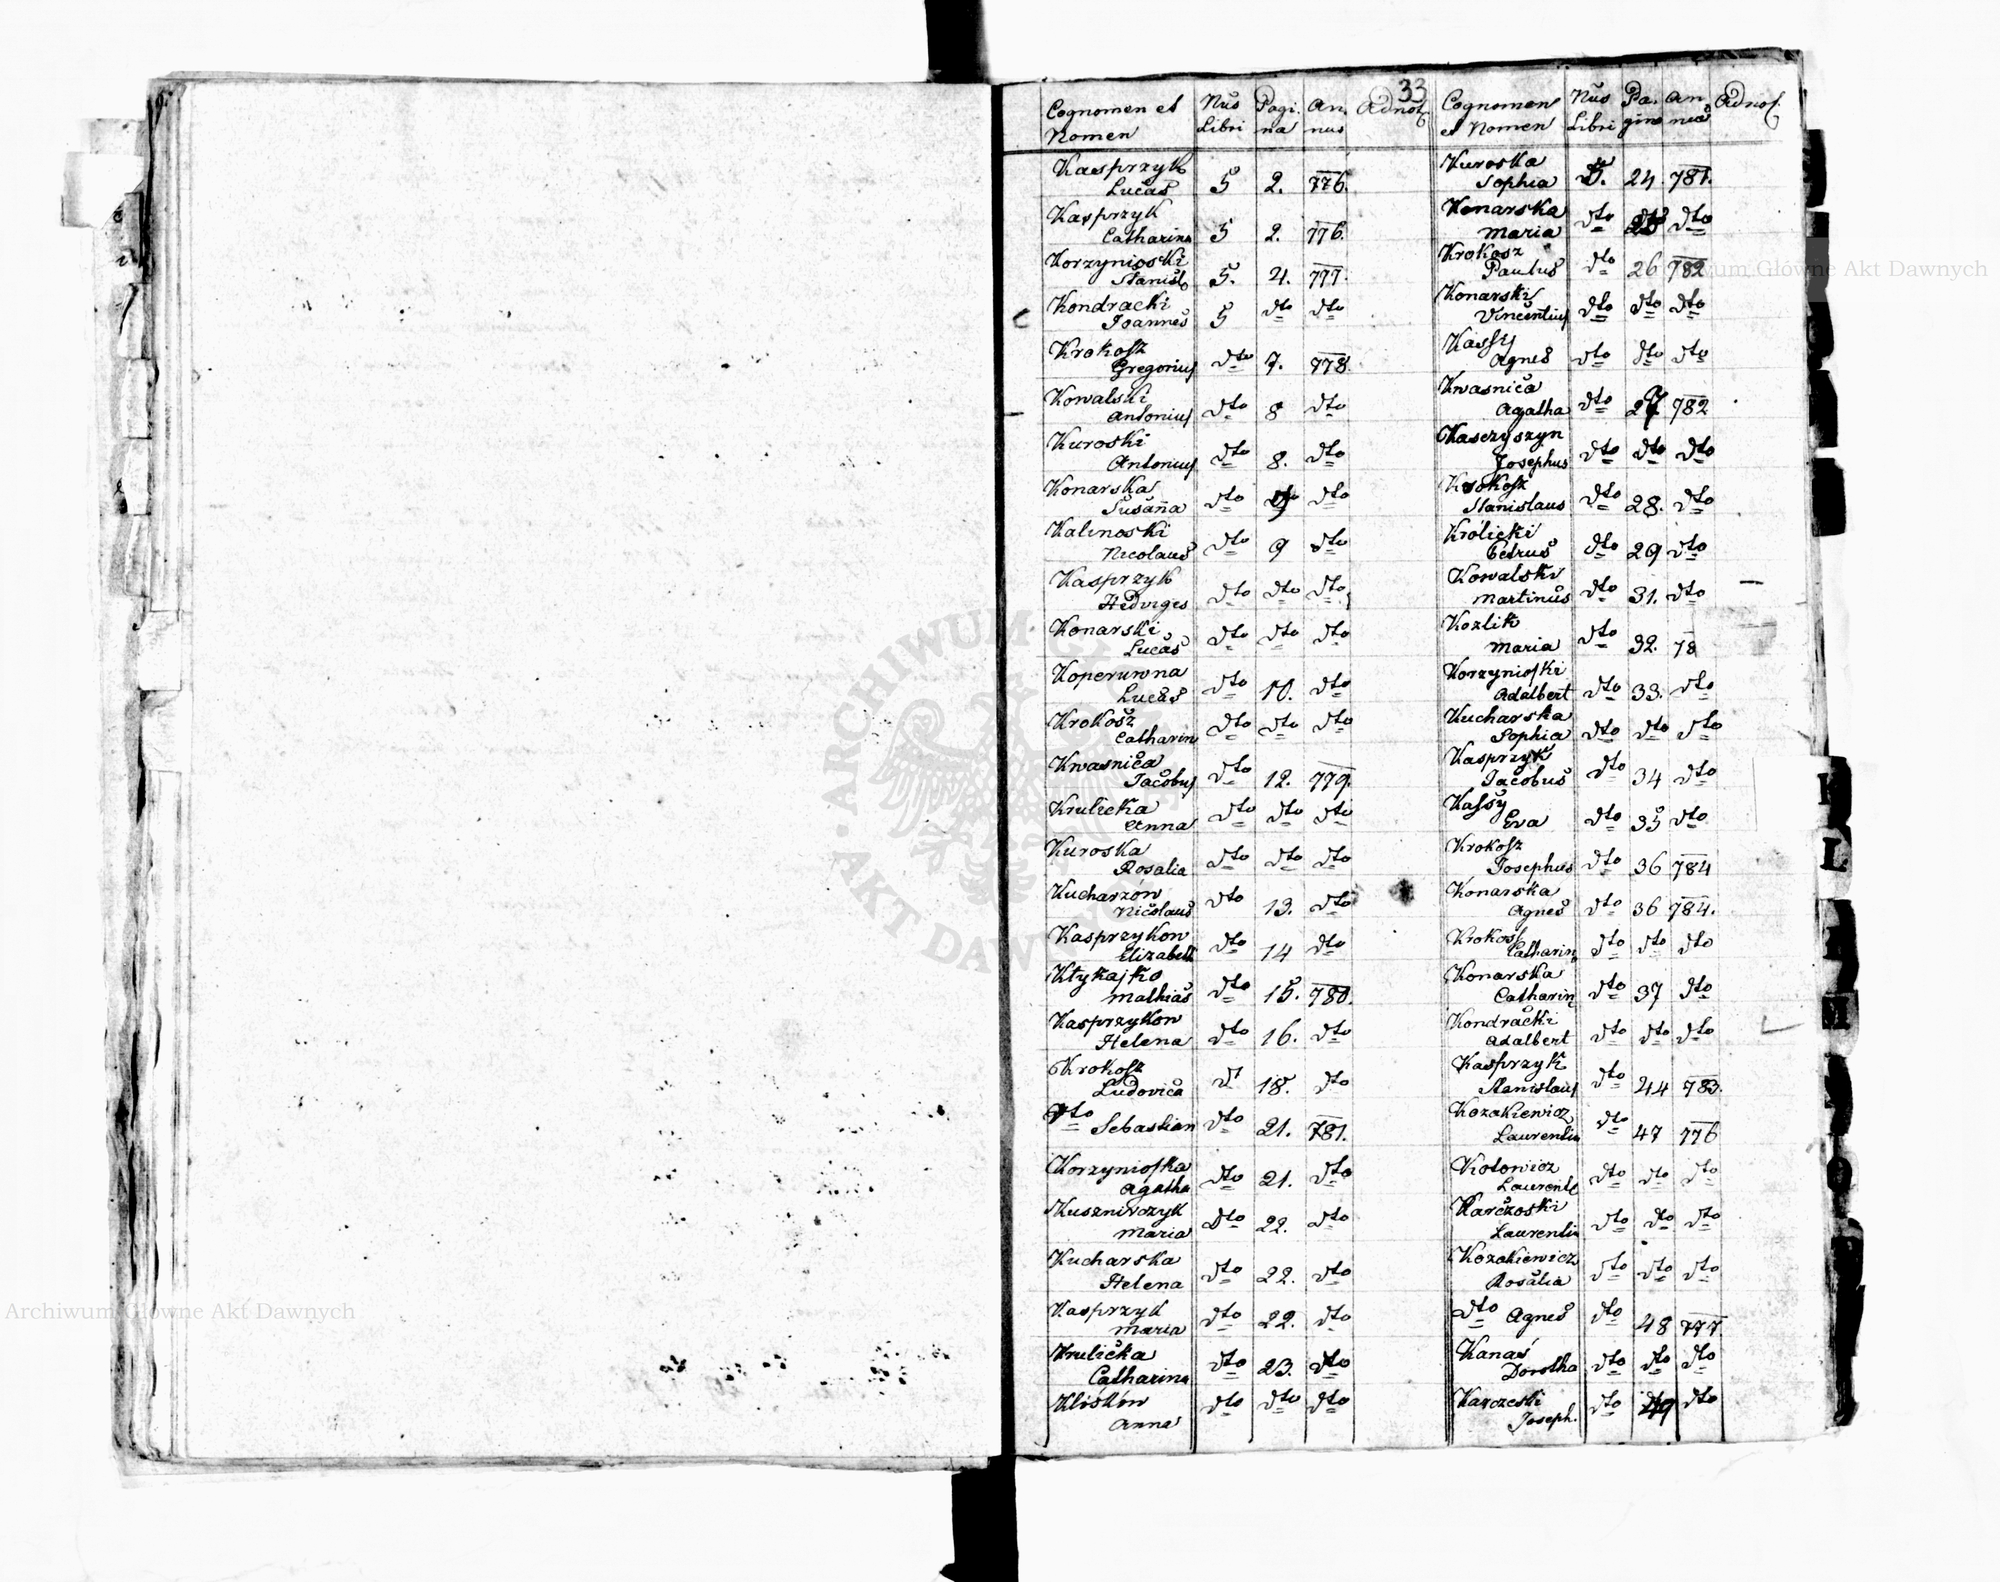 33
Cognomen et Nomen Nus Libri Pagina Annus Adnot.
Kasprzyk Lucas 5 2. 776.
Kasprzyk Catharina 5 2. 776.
Korzynioski Stanisl 5. 4. 777.
Kondracki Joannes 5 dto dto
Krokosz Gregorius dto 7. 778.
Kowalski Antonius dto 8 dto
Kuroski Antonius dto 8. dto
Konarska Susanna dto dto
Kalinoski Nicolaus dto 9 dto
Kasprzyk Hedviges dto dto dto
Konarski Lucas dto dto dto
Koperuwna Lucas dto 10. dto
Krokosz Catharin dto dto dto
Kwasnica Jacobus dto 12. 779.
Krulicka Anna dto dto dto
Kuroska Rosalia dto dto dto
Kucharzów Nicolaus dto 13. dto
Kasprzykow Elizabeth dto 14 dto
Ktykajko Mathias dto 15. 780.
Kasprzykow Helena dto 16. dto
Krokosz Ludovica dt 18. dto
dto Sebastian dto 21. 781.
Korzynioska Agatha dto 21. dto
Kusznirczyk Maria dto 22. dto
Kucharska Helena dto 22. dto
Kasprzyk Maria dto 22. dto
Krulicka Catharina dto 23. dto
Klósków Anna dto dto dto
Cognomen et Nomen Nus Libri Pagina Annus Adnot.
Kuroska Sophia 5. 24. 781.
Konarska Maria dto dto
Krokosz Paulus dto 26 782
Konarski Vincentius dto dto dto
Kassy Agnes dto dto dto
Kwasnica Agatha dto 27 782
Kasczyszyn Josephus dto dto dto
Krokosz Stanislaus dto 28. dto
Królicki Petrus dto 29 dto
Kowalski Martinus dto 31. dto
Kozlik Maria dto 32. 78
Korzynioski Adalbert dto 33. dto
Kucharska Sophia dto dto dto
Kasprzyk Jacobus dto 34 dto
Kassy Eva dto 35 dto
Krokosz Josephus dto 36 784
Konarska Agnes dto 36 784.
Krokosz Catharina dto dto dto
Konarska Catharin dto 37 dto
Kondracki Adalbert dto dto dto
Kasprzyk Stanislaus dto 44 783.
Kozakiewicz Laurentiu dto 47 776
Kotowicz Laurent dto dto dto
Karczoski Laurentiu dto dto dto
Kozakiewicz Rosalia dto dto dto
dto Agnes dto 48 777
Kanaś Dorotha dto dto dto
Karczeski Joseph. dto 49 dto
Archiwum Główne Akt Dawnych
Archiwum Główne Akt Dawnych
ARCHIWUM GŁ
AKT DAWNYCH
L